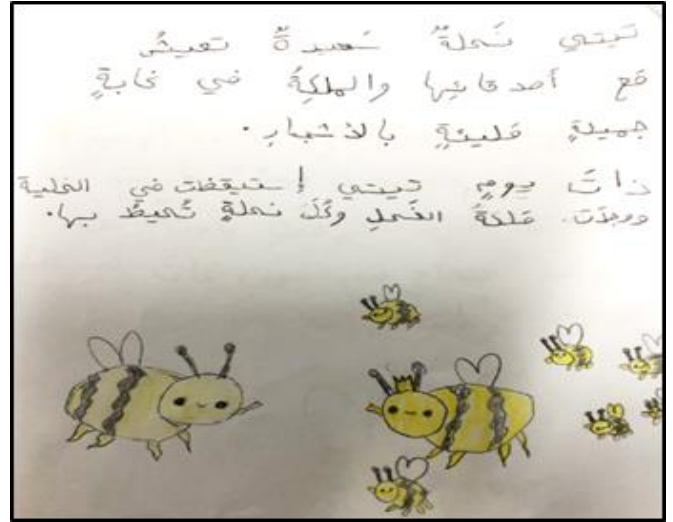 تيتي نَحلةٌ سَعيدةٌ تعيشُ
مَع أصدقائِها والملِكِةُ في غابةٍ
جميلةٍ مَليئةٍ بالأشجارِ.
ذاتَ يومٍ تيتي إستيقظت في الخلية
ووجدَت. مَلكةُ النَحلِ وكُلَ نحلةٍ تُحيطُ بها.